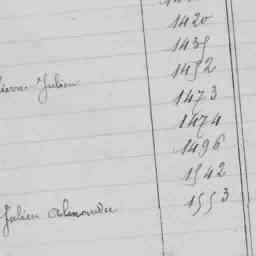 1420
1439
1452
Julien
1473
1474
1496
1542
1553
Julien Alexandre